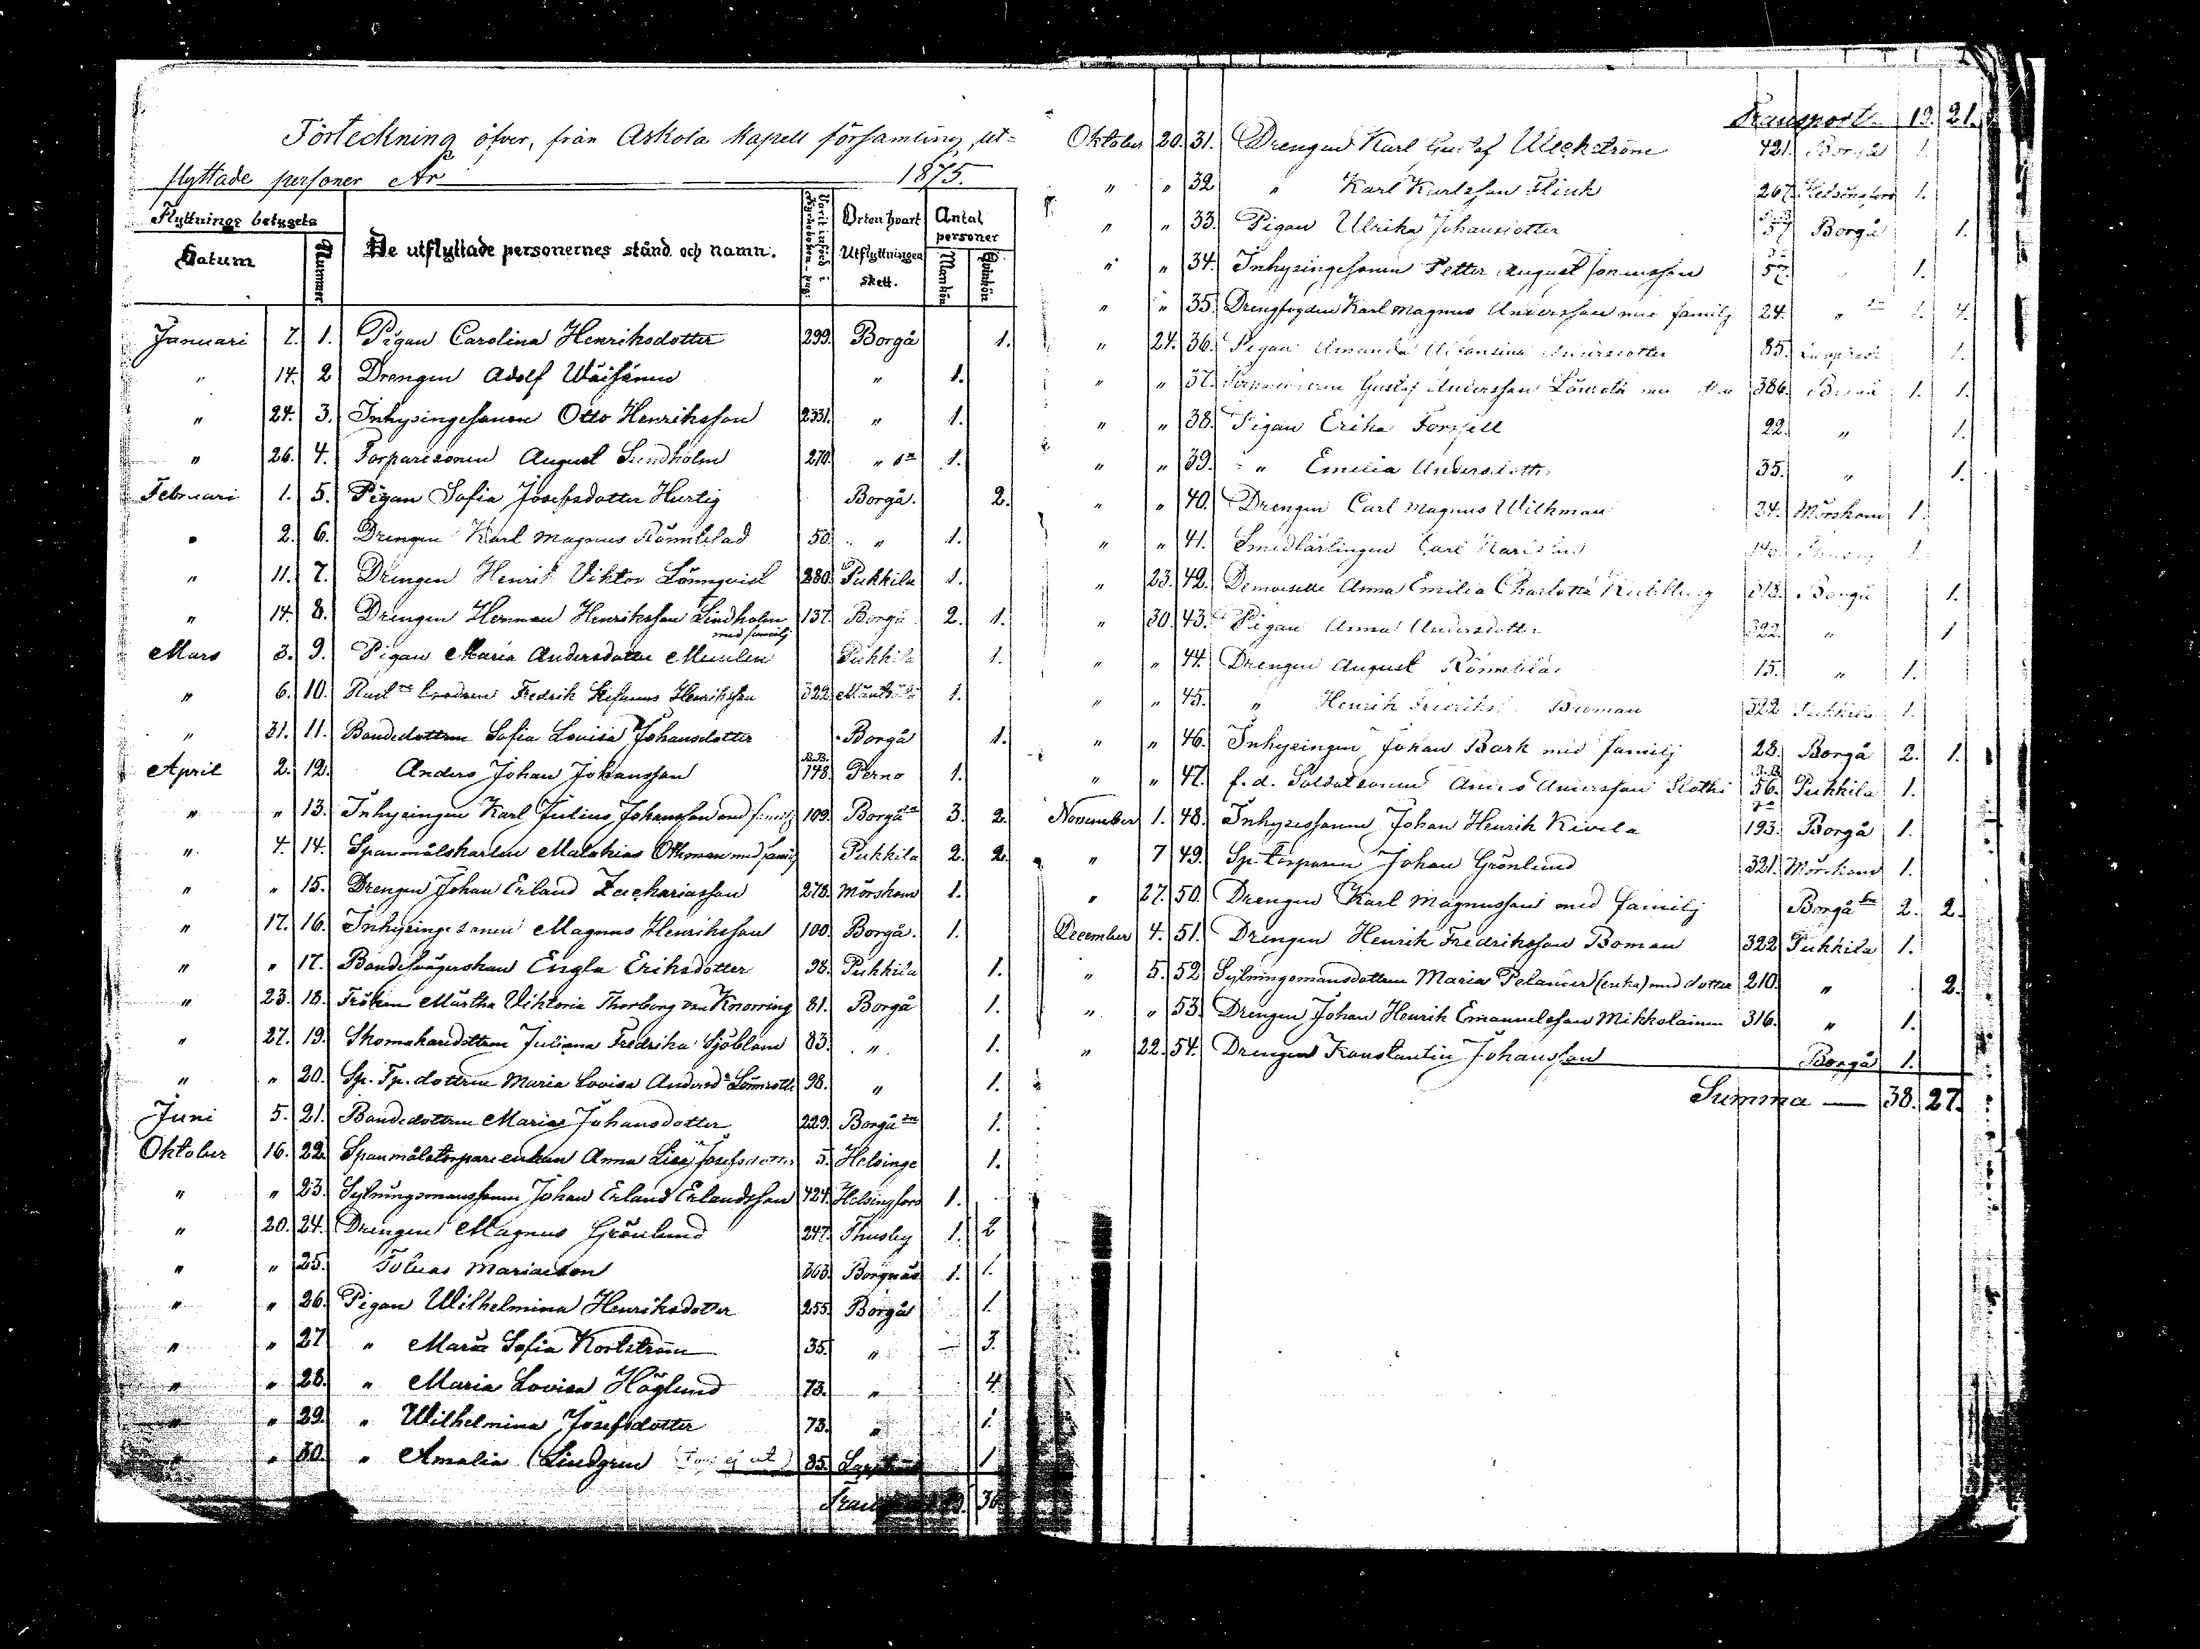 Förteckning öfver, från Askola kapell församling ut=
flyttade personer År 1875.
Flyttnings betygets
Datum Nummer De utflyttade personernes stånd och namn. Orten hvart Utflyttningen skett. Antal personer Mankön Qvinkön
Januari 7. 1. Pigan Carolina Henriksdotter 299. Borgå 1.
" 14. 2 Drengen Adolf Wäisänen " 1.
" 24. 3. Inhysingesonen Otto Henriksson 2331. " 1.
" 26. 4. Torparesonen August Sundholm 270. " 1.
Februari 1. 5. Pigan Sofia Josefsdotter Hurtig Borgå. 2.
" 2. 6. Drengen Karl Magnus Rönnblad 50. " 1.
" 11. 7. Drengen Henrik Viktor Lönnqvist 280. Pukkila 1.
" 14. 8. Drengen Herman Henriksson Lindholm med familj 137. Borgå 2. 1.
Mars 3. 9. Pigan Maria Andersdotter Pukkila 1.
" 6. 10. Fredrik Stefanus Henriksson 322. 1.
" 31. 11. Bondedottren Sofia Lovisa Johansdotter Borgå 1.
April 2. 12. Anders Johan Johansson 148. Perno 1.
" " 13. Inhysingen Karl Julius Johansson med familj 109. Borgå 3. 2.
" 4. 14. Spanmålskarlen Malakias Othman med familj Pukkila 2. 2.
" " 15. Drengen Johan Erland Zachariasson 278. Mörskom 1.
" 17. 16. Inhysingesonen Magnus Henriksson 100. Borgå. 1.
" " 17. Bondesvägerskan Engla Eriksdotter 98. Pukkila 1.
" 23. 18. Fröken Märtha Viktoria Thorborg von Knorring 81. Borgå 1.
" 27. 19. Skomakaredottren Juliana Fredrika Sjöblom 83. " 1.
" " 20. Sp. Tp. dottren Maria Lovisa Andersd. Lönnroth 98. " 1.
Juni 5. 21. Bondedottren Maria Johansdotter 229. Borgå 1.
Oktober 16. 22. Spanmålstorpareenkan Anna Lisa Josefsdotter 5. Helsinge 1.
" " 23. Sytningsmanssonen Johan Erland Erlandsson 424. Helsingfors 1.
" 20. 24. Drengen Magnus Grönlund 247. Thusby 1. 2
" " 25. Tobias Mariasson 363. Borgnäs 1. 1.
" " 26. Pigan Wilhelmina Henriksdotter 255. Borgå 1.
" " 27 " Maria Sofia Kortström 35. " 3.
" " 28. " Maria Lovisa Höglund 73. " 4.
" " 29. " Wilhelmina Josefsdotter 73. " 1.
" " 30. " Amalia Lindgren ej ut) 85. 1
Transport 19. 21.
Oktober 20. 31. Drengen Karl Gustaf Weckström 421. Borgå 1.
" " 32. " Karl Karlsson Flink 267. Helsingfors 1.
" " 33. Pigan Ulrika Johansdotter 57 Borgå 1.
" " 34. Inhysingesonen Petter August 57. " 1.
" " 35. Drengfogden Karl Magnus Andersson med familj 24. " 1. 4.
" 24. 36. Pigan Amanda Andersdotter 85. 1.
" " 37. Gustaf Andersson Lönnroth 386. Borgå 1. 1.
" " 38. Pigan Erika Forssell 22. " 1.
" " 39. " Emilia Andersdotter 35. " 1.
" " 40. Drengen Carl Magnus Wilkman 24. Mörskom 1.
" " 41. Smedlärlingen Carl 1.
" 23. 42. Demoiselle Anna Emilia Charlotta Borgå 1.
" 30. 43. Pigan Anna Andersdotter 322. " 1
" " 44. Drengen August Rönnblad 15. " 1.
" " 45. " Henrik Fredriks Boman 322 Pukkila 1.
" " 46. Inhysingen Johan Bark med familj 28. Borgå 2. 1.
" " 47. f. d. Soldatsonen Anders Andersson 56. Pukkila 1.
November 1. 48. Inhysessonen Johan Henrik Kivela 193. Borgå 1.
" 7 49. Sp. torparen Johan Grönlund 321. Mörskom 1.
" 27. 50. Drengen Karl Magnusson med familj Borgå 2. 2.
December 4. 51. Drengen Henrik Fredriksson Boman 322 Pukkila 1.
" 5. 52 Sytningsmansdottren Maria Pelander (enka) med dotter 210. " 2.
" " 53. Drengen Johan Henrik Emanuelsson Mikkolainen 316. " 1.
" 22. 54. Drengen Konstantin Johansson Borgå 1.
Summa — 38. 27.